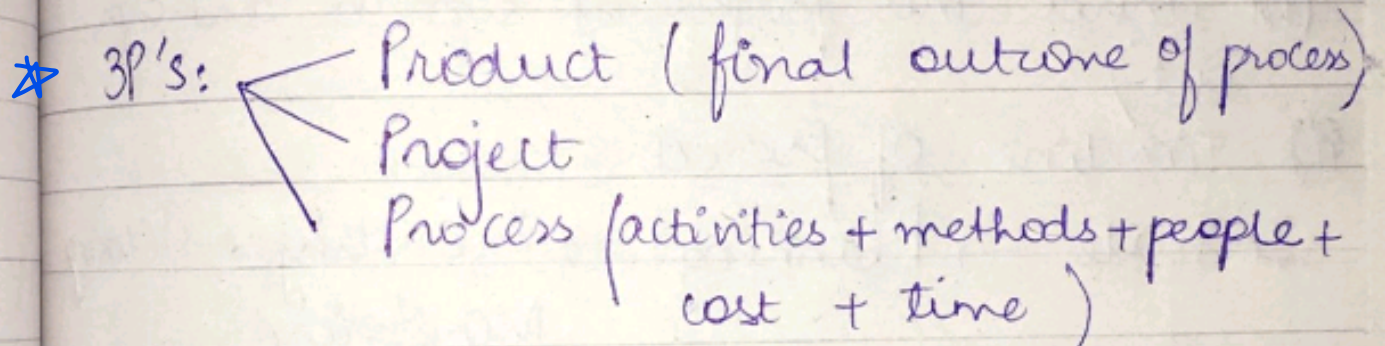 3P's: Product (final outcome of process)
Project
Process (activities + methods + people +
cost + time)